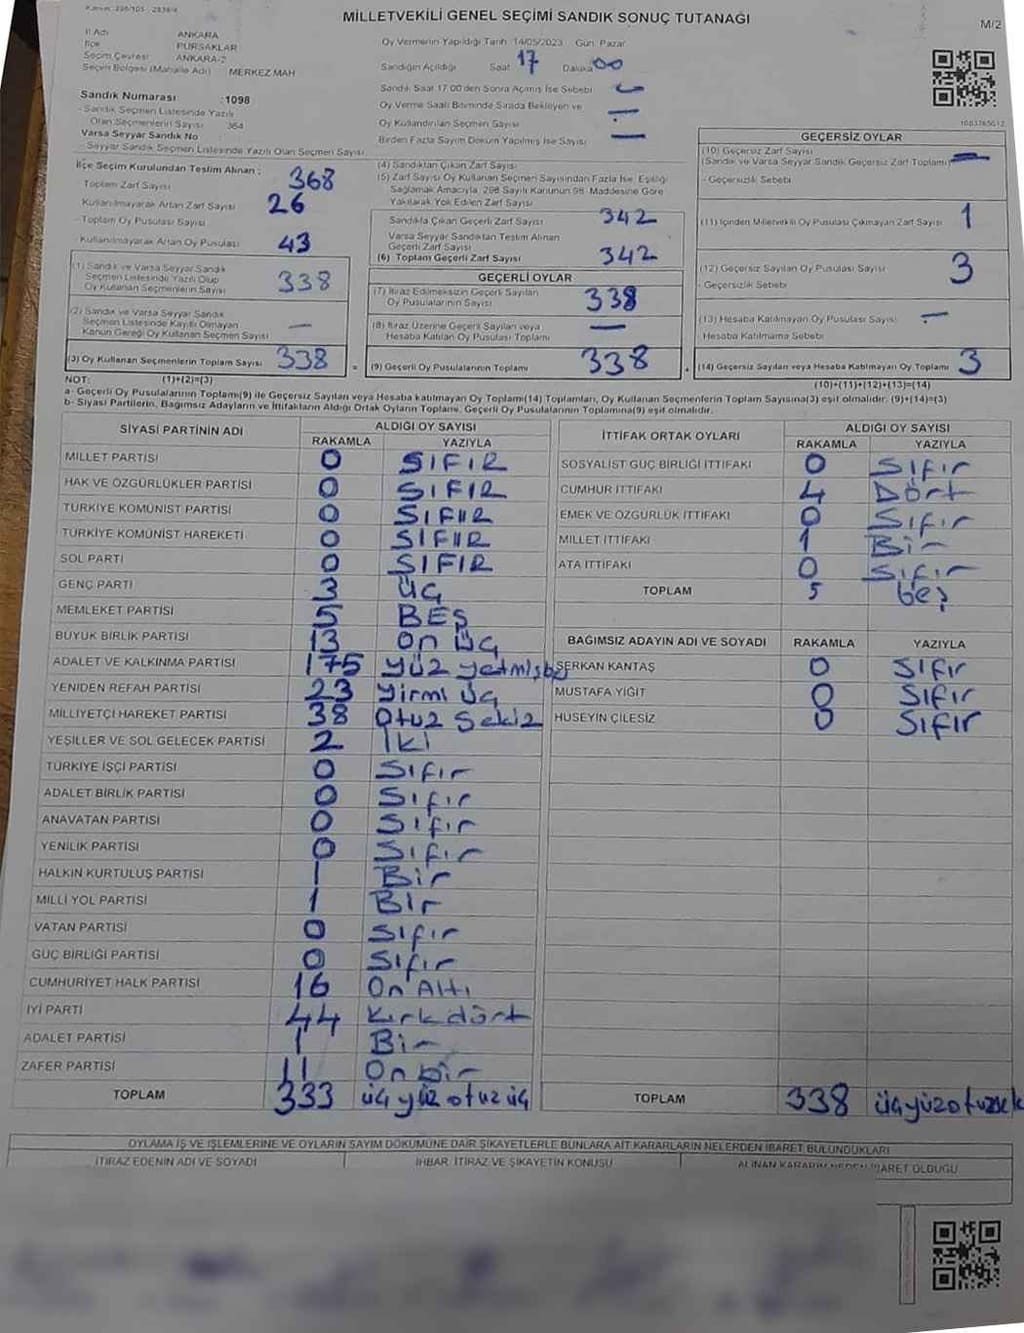 MİLLETVEKİLİ GENEL SEÇİMİ SANDIK SONUÇ TUTANAĞI
M/2
İl Adı ANKARA
İlçe PURSAKLAR
Seçim Çevresi ANKARA-2
Seçim Bölgesi (Mahalle Adı) MERKEZ MAH
Sandık Numarası :1098
- Sandık Seçmen Listesinde Yazılı
Olan Seçmenlerin Sayısı 364
Varsa Seyyar Sandık No
Seyyar Sandık Seçmen Listesinde Yazılı Olan Seçmen Sayısı
Oy Vermenin Yapıldığı Tarih 14/05/2023 Gün Pazar
Sandığın Açıldığı Saat 17 Dakika 00
Sandık Saat 17.00'den Sonra Açılmış İse Sebebi
Oy Verme Saati Bitiminde Sırada Bekleyen ve
Oy Kullandırılan Seçmen Sayısı
Birden Fazla Sayım Döküm Yapılmış İse Sayısı
İlçe Seçim Kurulundan Teslim Alınan :
Toplam Zarf Sayısı 368
Kullanılmayarak Artan Zarf Sayısı 26
- Toplam Oy Pusulası Sayısı
- Kullanılmayarak Artan Oy Pusulası 43
(1) Sandık ve Varsa Seyyar Sandık
Seçmen Listesinde Yazılı Olup
Oy Kullanan Seçmenlerin Sayısı 338
(2) Sandık ve Varsa Seyyar Sandık
Seçmen Listesinde Kayıtlı Olmayan
Kanun Gereği Oy Kullanan Seçmen Sayısı —
(3) Oy Kullanan Seçmenlerin Toplam Sayısı 338
(4) Sandıktan Çıkan Zarf Sayısı
(5) Zarf Sayısı Oy Kullanan Seçmen Sayısından Fazla İse, Eşitliği
Sağlamak Amacıyla, 298 Sayılı Kanunun 98. Maddesine Göre
Yakılarak Yok Edilen Zarf Sayısı
Sandıkta Çıkan Geçerli Zarf Sayısı 342
Varsa Seyyar Sandıktan Teslim Alınan
Geçerli Zarf Sayısı
(6) Toplam Geçerli Zarf Sayısı 342
GEÇERLİ OYLAR
(7) İtiraz Edilmeksizin Geçerli Sayılan
Oy Pusulalarının Sayısı 338
(8) İtiraz Üzerine Geçerli Sayılan veya
Hesaba Katılan Oy Pusulası Toplamı —
= (9) Geçerli Oy Pusulalarının Toplamı 338
GEÇERSİZ OYLAR
(10) Geçersiz Zarf Sayısı
(Sandık ve Varsa Seyyar Sandık Geçersiz Zarf Toplamı) —
- Geçersizlik Sebebi
(11) İçinden Milletvekili Oy Pusulası Çıkmayan Zarf Sayısı 1
(12) Geçersiz Sayılan Oy Pusulası Sayısı 3
- Geçersizlik Sebebi
(13) Hesaba Katılmayan Oy Pusulası Sayısı —
- Hesaba Katılmama Sebebi
(14) Geçersiz Sayılan veya Hesaba Katılmayan Oy Toplamı 3
NOT: (1)+(2)=(3) (10)+(11)+(12)+(13)=(14)
a- Geçerli Oy Pusulalarının Toplamı(9) ile Geçersiz Sayılan veya Hesaba katılmayan Oy Toplam(14) Toplamları, Oy Kullanan Seçmenlerin Toplam Sayısına(3) eşit olmalıdır. (9)+(14)=(3)
b- Siyasi Partilerin, Bağımsız Adayların ve İttifakların Aldığı Ortak Oyların Toplamı, Geçerli Oy Pusulalarının Toplamına(9) eşit olmalıdır.
SİYASİ PARTİNİN ADI ALDIĞI OY SAYISI
RAKAMLA YAZIYLA
MİLLET PARTİSİ 0 SIFIR
HAK VE ÖZGÜRLÜKLER PARTİSİ 0 SIFIR
TÜRKİYE KOMÜNİST PARTİSİ 0 SIFIR
TÜRKİYE KOMÜNİST HAREKETİ 0 SIFIR
SOL PARTİ 0 SIFIR
GENÇ PARTİ 3 ÜÇ
MEMLEKET PARTİSİ 5 BEŞ
BÜYÜK BİRLİK PARTİSİ 13 on üç
ADALET VE KALKINMA PARTİSİ 175 yüz yetmişbeş
YENİDEN REFAH PARTİSİ 23 yirmi üç
MİLLİYETÇİ HAREKET PARTİSİ 38 otuz sekiz
YEŞİLLER VE SOL GELECEK PARTİSİ 2 İki
TÜRKİYE İŞÇİ PARTİSİ 0 Sıfır
ADALET BİRLİK PARTİSİ 0 Sıfır
ANAVATAN PARTİSİ 0 Sıfır
YENİLİK PARTİSİ 0 Sıfır
HALKIN KURTULUŞ PARTİSİ 1 Bir
MİLLİ YOL PARTİSİ 1 Bir
VATAN PARTİSİ 0 Sıfır
GÜÇ BİRLİĞİ PARTİSİ 0 Sıfır
CUMHURİYET HALK PARTİSİ 16 On Altı
İYİ PARTİ 44 Kırkdört
ADALET PARTİSİ 1 Bir
ZAFER PARTİSİ 11 Onbir
TOPLAM 333 üçyüzotuzüç
İTTİFAK ORTAK OYLARI ALDIĞI OY SAYISI
RAKAMLA YAZIYLA
SOSYALİST GÜÇ BİRLİĞİ İTTİFAKI 0 Sıfır
CUMHUR İTTİFAKI 4 Dört
EMEK VE ÖZGÜRLÜK İTTİFAKI 0 Sıfır
MİLLET İTTİFAKI 1 Bir
ATA İTTİFAKI 0 Sıfır
TOPLAM 5 beş
BAĞIMSIZ ADAYIN ADI VE SOYADI RAKAMLA YAZIYLA
SERKAN KANTAŞ 0 Sıfır
MUSTAFA YİĞİT 0 Sıfır
HÜSEYİN ÇİLESİZ 0 Sıfır
TOPLAM 338 üçyüzotuzsek
OYLAMA İŞ VE İŞLEMLERİNE VE OYLARIN SAYIM DÖKÜMÜNE DAİR ŞİKAYETLERLE BUNLARA AİT KARARLARIN NELERDEN İBARET BULUNDUKLARI
İTİRAZ EDENİN ADI VE SOYADI İHBAR, İTİRAZ VE ŞİKAYETİN KONUSU ALINAN KARARIN NEDEN İBARET OLDUĞU